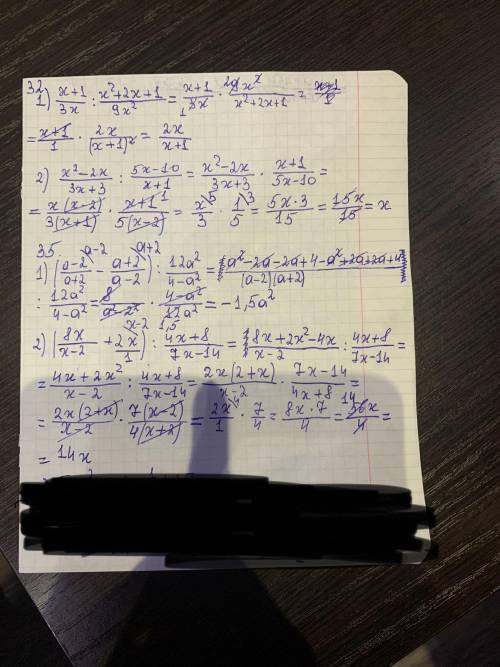 32
1) x+1/3x : x²+2x+1/9x² = x+1/3x · 9x²/x²+2x+1 =
= x+1/1 · 2x/(x+1)² = 2x/x+1
2) x²-2x/3x+3 : 5x-10/x+1 = x²-2x/3x+3 · x+1/5x-10 =
= x(x-2)/3(x+1) · x+1/5(x-2) = x/3 · 1/5 = 5x·3/15 = 15x/15 = x
35 a-2 a+2
1) (a-2/a+2 - a+2/a-2) : 12a²/4-a² = a²-2a-2a+4-a²+2a+2a+4/(a-2)(a+2)
: 12a²/4-a² = 8/a²-2² · 4-a²/12a² = -1,5a²
2) (8x/x-2 + 2x/1) : 4x+8/7x-14 = 8x+2x²-4x/x-2 : 4x+8/7x-14 =
= 4x+2x²/x-2 : 4x+8/7x-14 = 2x(2+x)/x-2 · 7x-14/4x+8 =
= 2x(2+x)/x-2 · 7(x-2)/4(x+2) = 2x/1 · 7/4 = 8x·7/4 = 56x/4 =
= 14x